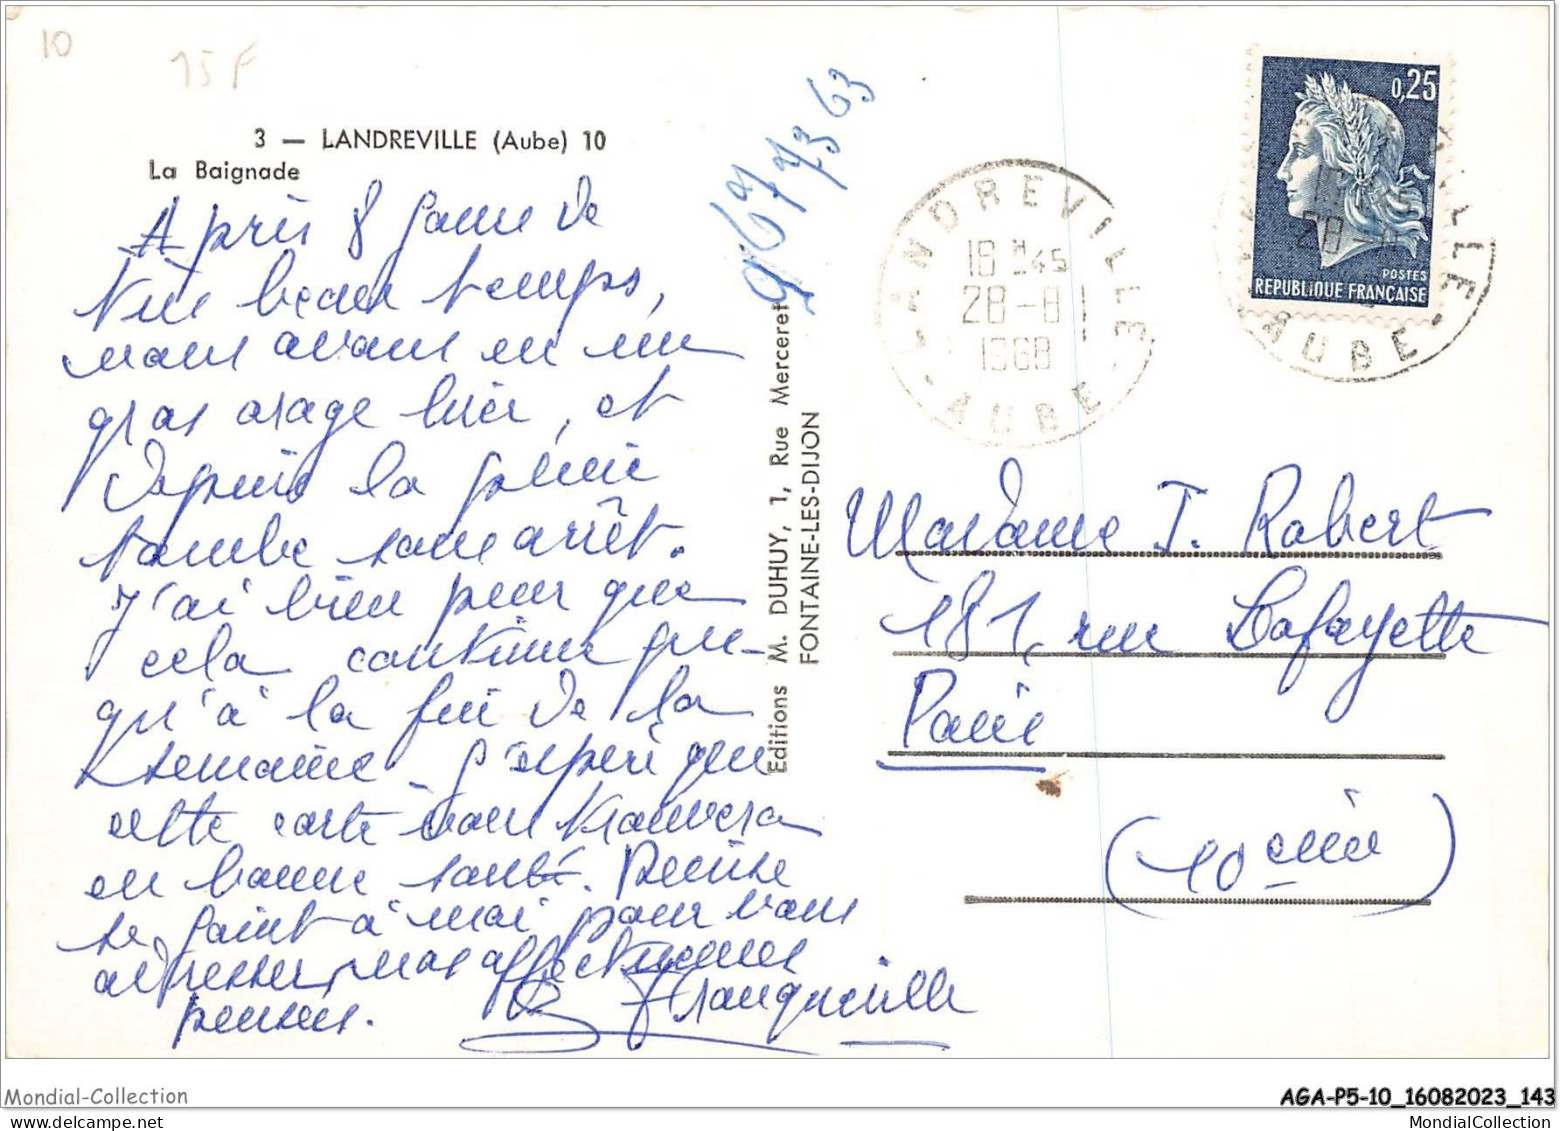 10
15 F
3 — LANDREVILLE (Aube) 10
La Baignade
Après 8 jours de
très beau temps,
nous avons eu un
gros orage hier, et
depuis la pluie
tombe sans arrêt.
J'ai bien peur que
cela continue jus-
qu'à la fin de la
semaine. J'espère que
cette carte vous trouvera
en bonne santé. Denise
se joint à moi pour vous
adresser nos affectueuses
pensées.
Editions M. DUHUY, 1, Rue Merceret
FONTAINE-LES-DIJON
LANDREVILLE
16 H 45
28-8
1968
AUBE
0,25
POSTES
REPUBLIQUE FRANÇAISE
AUBE
Madame J. Robert
181, rue Lafayette
Paris
(10 ème)
Mondial-Collection
AGA-P5-10_16082023_143
MondialCollection